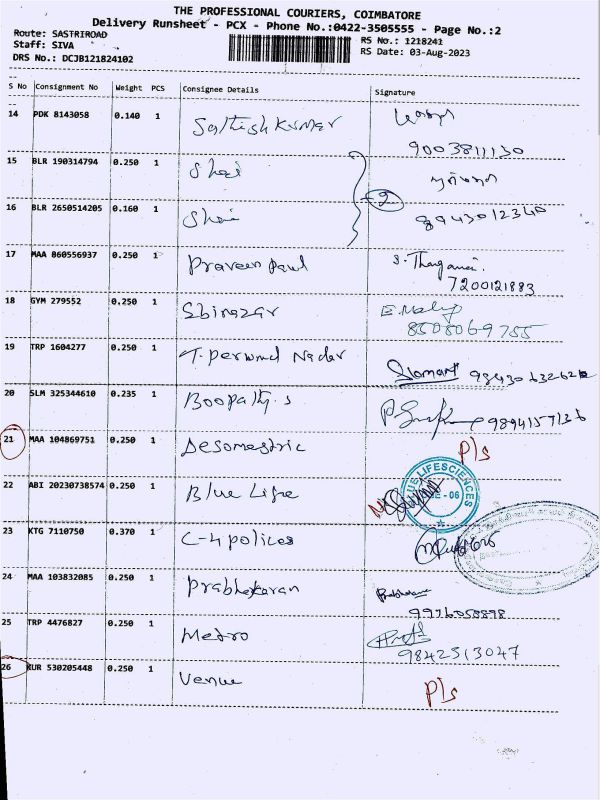 THE PROFESSIONAL COURIERS, COIMBATORE
Delivery Runsheet - PCX - Phone No.:0422-3505555 - Page No.:2
Route: SASTRIROAD
Staff: SIVA
DRS No.: DCJB121824102
RS No.: 1218241
RS Date: 03-Aug-2023
S No Consignment No Weight PCS Consignee Details Signature
14 PDK 8143058 0.140 1 Sathish Kumar
9003811130
15 BLR 190314794 0.250 1
2
16 BLR 2650514205 0.160 1 8943012340
17 MAA 860556937 0.250 1 Praveen Paul
7200121883
18 GYM 279552 0.250 1 Sbinazar
8508069755
19 TRP 1604277 0.250 1 Nadar
20 SLM 325344610 0.235 1 Boopathy. s 9894157136
21 MAA 104869751 0.250 1 Desomestric P/s
22 ABI 20230738574 0.250 1 Blue Life
BLUE LIFESCIENCES
23 KTG 7110750 0.370 1 C-4 polices
24 MAA 103832085 0.250 1 Prabhakaran
9976058898
25 TRP 4476827 0.250 1 Metro
9842513047
26 RUR 530205448 0.250 1 Venue P/s